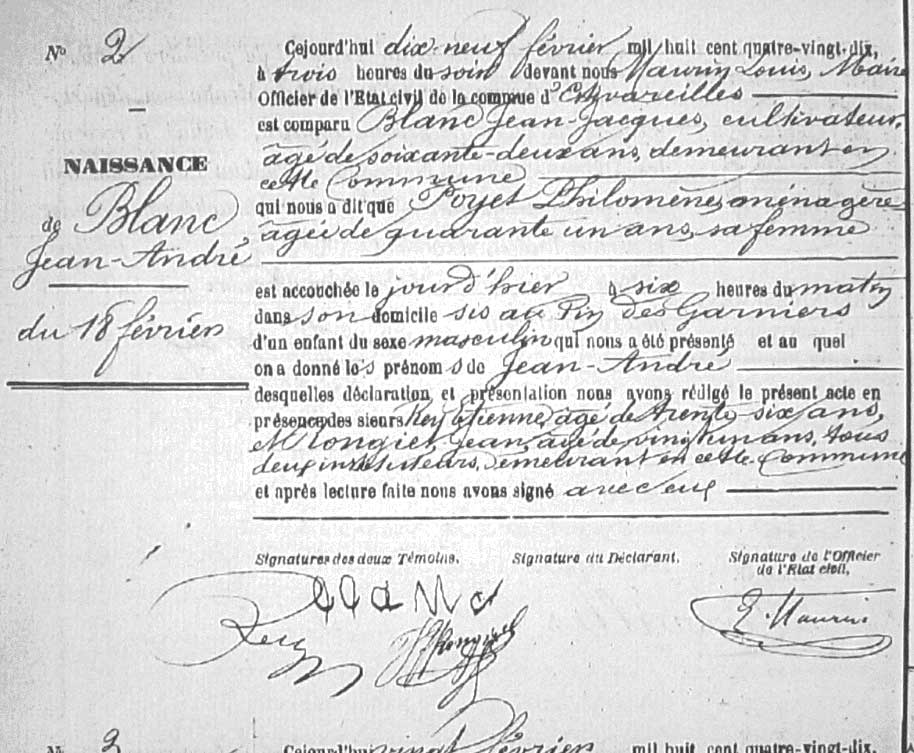 Nº 2
NAISSANCE
de Blanc
Jean-André
du 18 février
Cejourd'hui dix-neuf février mil huit cent quatre-vingt-dix,
à trois heures du soir devant nous Maurin Louis, Maire
Officier de l'Etat civil de la commune d'Estivareilles
est comparu Blanc Jean-Jacques, cultivateur,
âgé de soixante-deux ans, demeurant en
cette Commune
qui nous a dit que Poyet Philomène, ménagère
âgée de quarante un ans, sa femme
est accouchée le jourd'hier à six heures du matin
dans son domicile sis au Pin des Garniers
d'un enfant du sexe masculin qui nous a été présenté et au quel
on a donné les prénoms de Jean-André
desquelles déclaration et présentation nous avons rédigé le présent acte en
présence des sieurs Rey Etienne, âgé de trente-six ans,
Jean, âgé de vingt un ans, tous
deux instituteurs, demeurant en cette Commune
et après lecture faite nous avons signé avec eux
Signatures des deux Témoins. Signature du Déclarant. Signature de l'Officier
de l'Etat civil,
Rey
Maurin
Nº 3 Cejourd'hui vingt février mil huit cent quatre-vingt-dix,